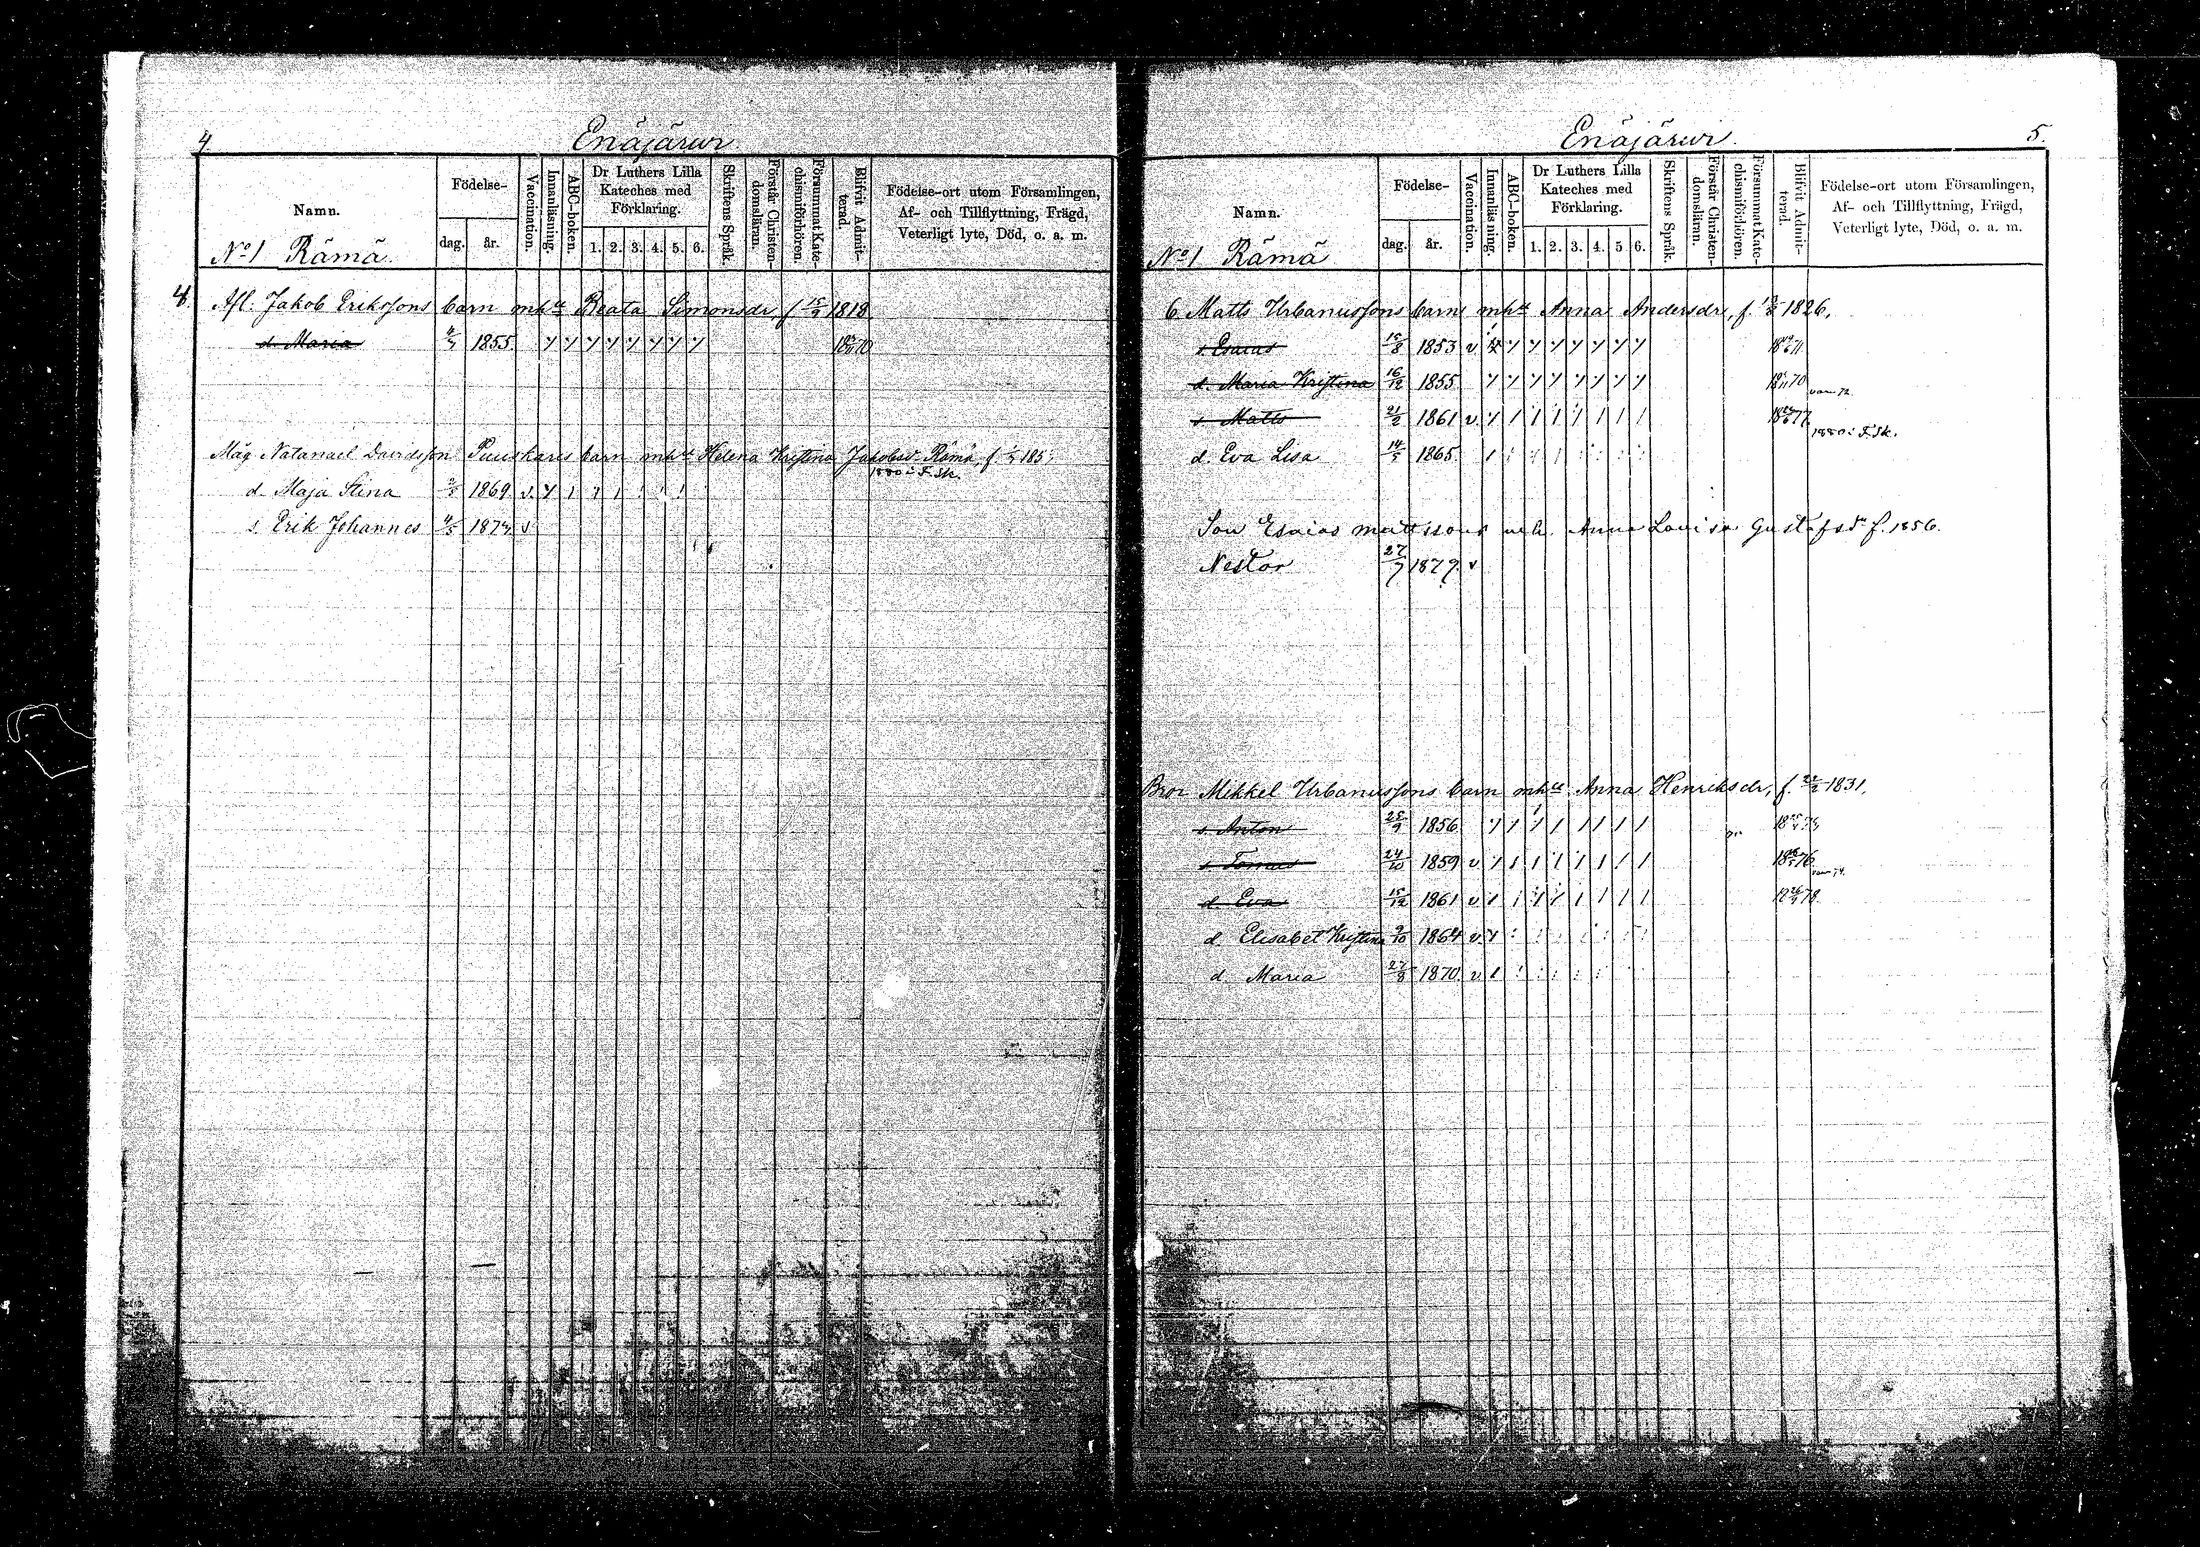 4.
Enäjärwi
Namn.
Födelse-
dag.
år.
Vaccination.
Innanläsning.
ABC-boken.
Dr Luthers Lilla Kateches med Förklaring.
1. 2. 3. 4. 5. 6.
Skriftens Språk.
Förstår Christen-domsläran.
Försummat Kate-chismiförhören.
Blifvit Admit-terad.
Födelse-ort utom Församlingen,
Af- och Tillflyttning, Frägd,
Veterligt lyte, Död, o. a. m.
No 1 Rämä
4. Afl. Jakob Erikssons barn mh Beata Simonsdr, f 15/9 1818
d. Maria 1855
Måg Natanael Davidsson Puuskaris barn mh Helena Kristina Jakobsd. Rämä, f.
1880 i F. Sk.
d. Maja Stina 1869 v.
s. Erik Johannes 4/5 1873 v
5.
Enäjärwi.
Namn.
Födelse-
dag.
år.
Vaccination.
Innanläsning.
ABC-boken.
Dr Luthers Lilla Kateches med Förklaring.
1. 2. 3. 4. 5. 6.
Skriftens Språk.
Förstår Christen-domsläran.
Försummat Kate-chismiförhören.
Blifvit Admit-terad.
Födelse-ort utom Församlingen,
Af- och Tillflyttning, Frägd,
Veterligt lyte, Död, o. a. m.
No 1 Rämä
6 Matts Urbanussons barn mh Anna Andersdr, f. 1826.
s. Esaias 15/8 1853 v
d. Maria Kristina 16/12 1855
s Matts 21/2 1861 v
1880 i F. Sk.
d. Eva Lisa 14/5 1865.
Son Esaias mattssons meh. Anna Lovisa Gustafsdr f. 1856.
Nestor 27/7 1879. v
Bror Mikkel Urbanussons barn mh Anna Henriksdr, f. 22/2 1831.
s. Anton 25/9 1856
s Tomas 24/10 1859 v
d. Eva 15/12 1861 v
d. Elisabet Kristina 9/10 1864 v.
d. Maria 27/8 1870. v